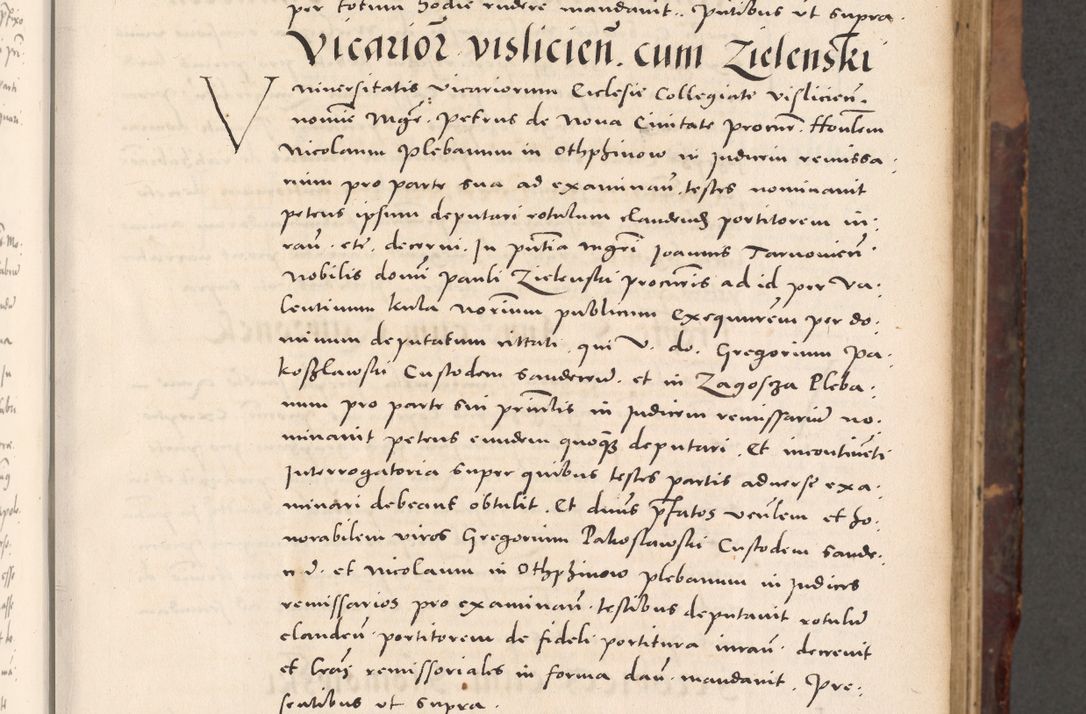 per totum hodie rndere mandavit. Pntibus ut supra.
Vicarior vislicien̄. cum Zielenski
Vniversitatis Vicariorum Ecclesie Collegiate vislicien̄.
nomīe Mgr̄. Petrus de Nova Civitate procur̄. Hon̄lem
Nicolaum Plebanum in Othphinow in Judicem remissa:
rium pro parte sua ad examinan̄. testes nominavit
petens ipsum deputari rotulum claudend portitorem iu:
ran̄. etc̄. decerni. In pn̄tia Mgr̄i Joannis Tarnovien̄.
Nobilis domī Pauli Zielenski procur̄is ad id per Va:
lentinum Kula Norīum publicum Exequutrem per do:
minum deputatum cittati. qui V. do. Gregorium Pa:
koszlawski Custodem Sandemir̄. et in Zagosza Pleba:
num pro parte sui prin̄lis in Judicem remissariū no:
minavit petens eundem quoqȝ deputari. Et incontinēti
Interrogatoria super quibus testes partis adverse exa:
minari debeant obtulit. Et dn̄us pfatos ven̄lem et ho:
norabilem viros Gregorium Pakoslawski Custodem Sande:
et Nicolaum in Othphinow plebanum in Judices
remissarios pro examinan̄. testibus deputavit rotulū
clauden̄. portitorem de fideli portitura iuran̄. decrevit
et lr̄as remissoriales in forma dan̄. mandavit. Pre:
sentibus ut supra.